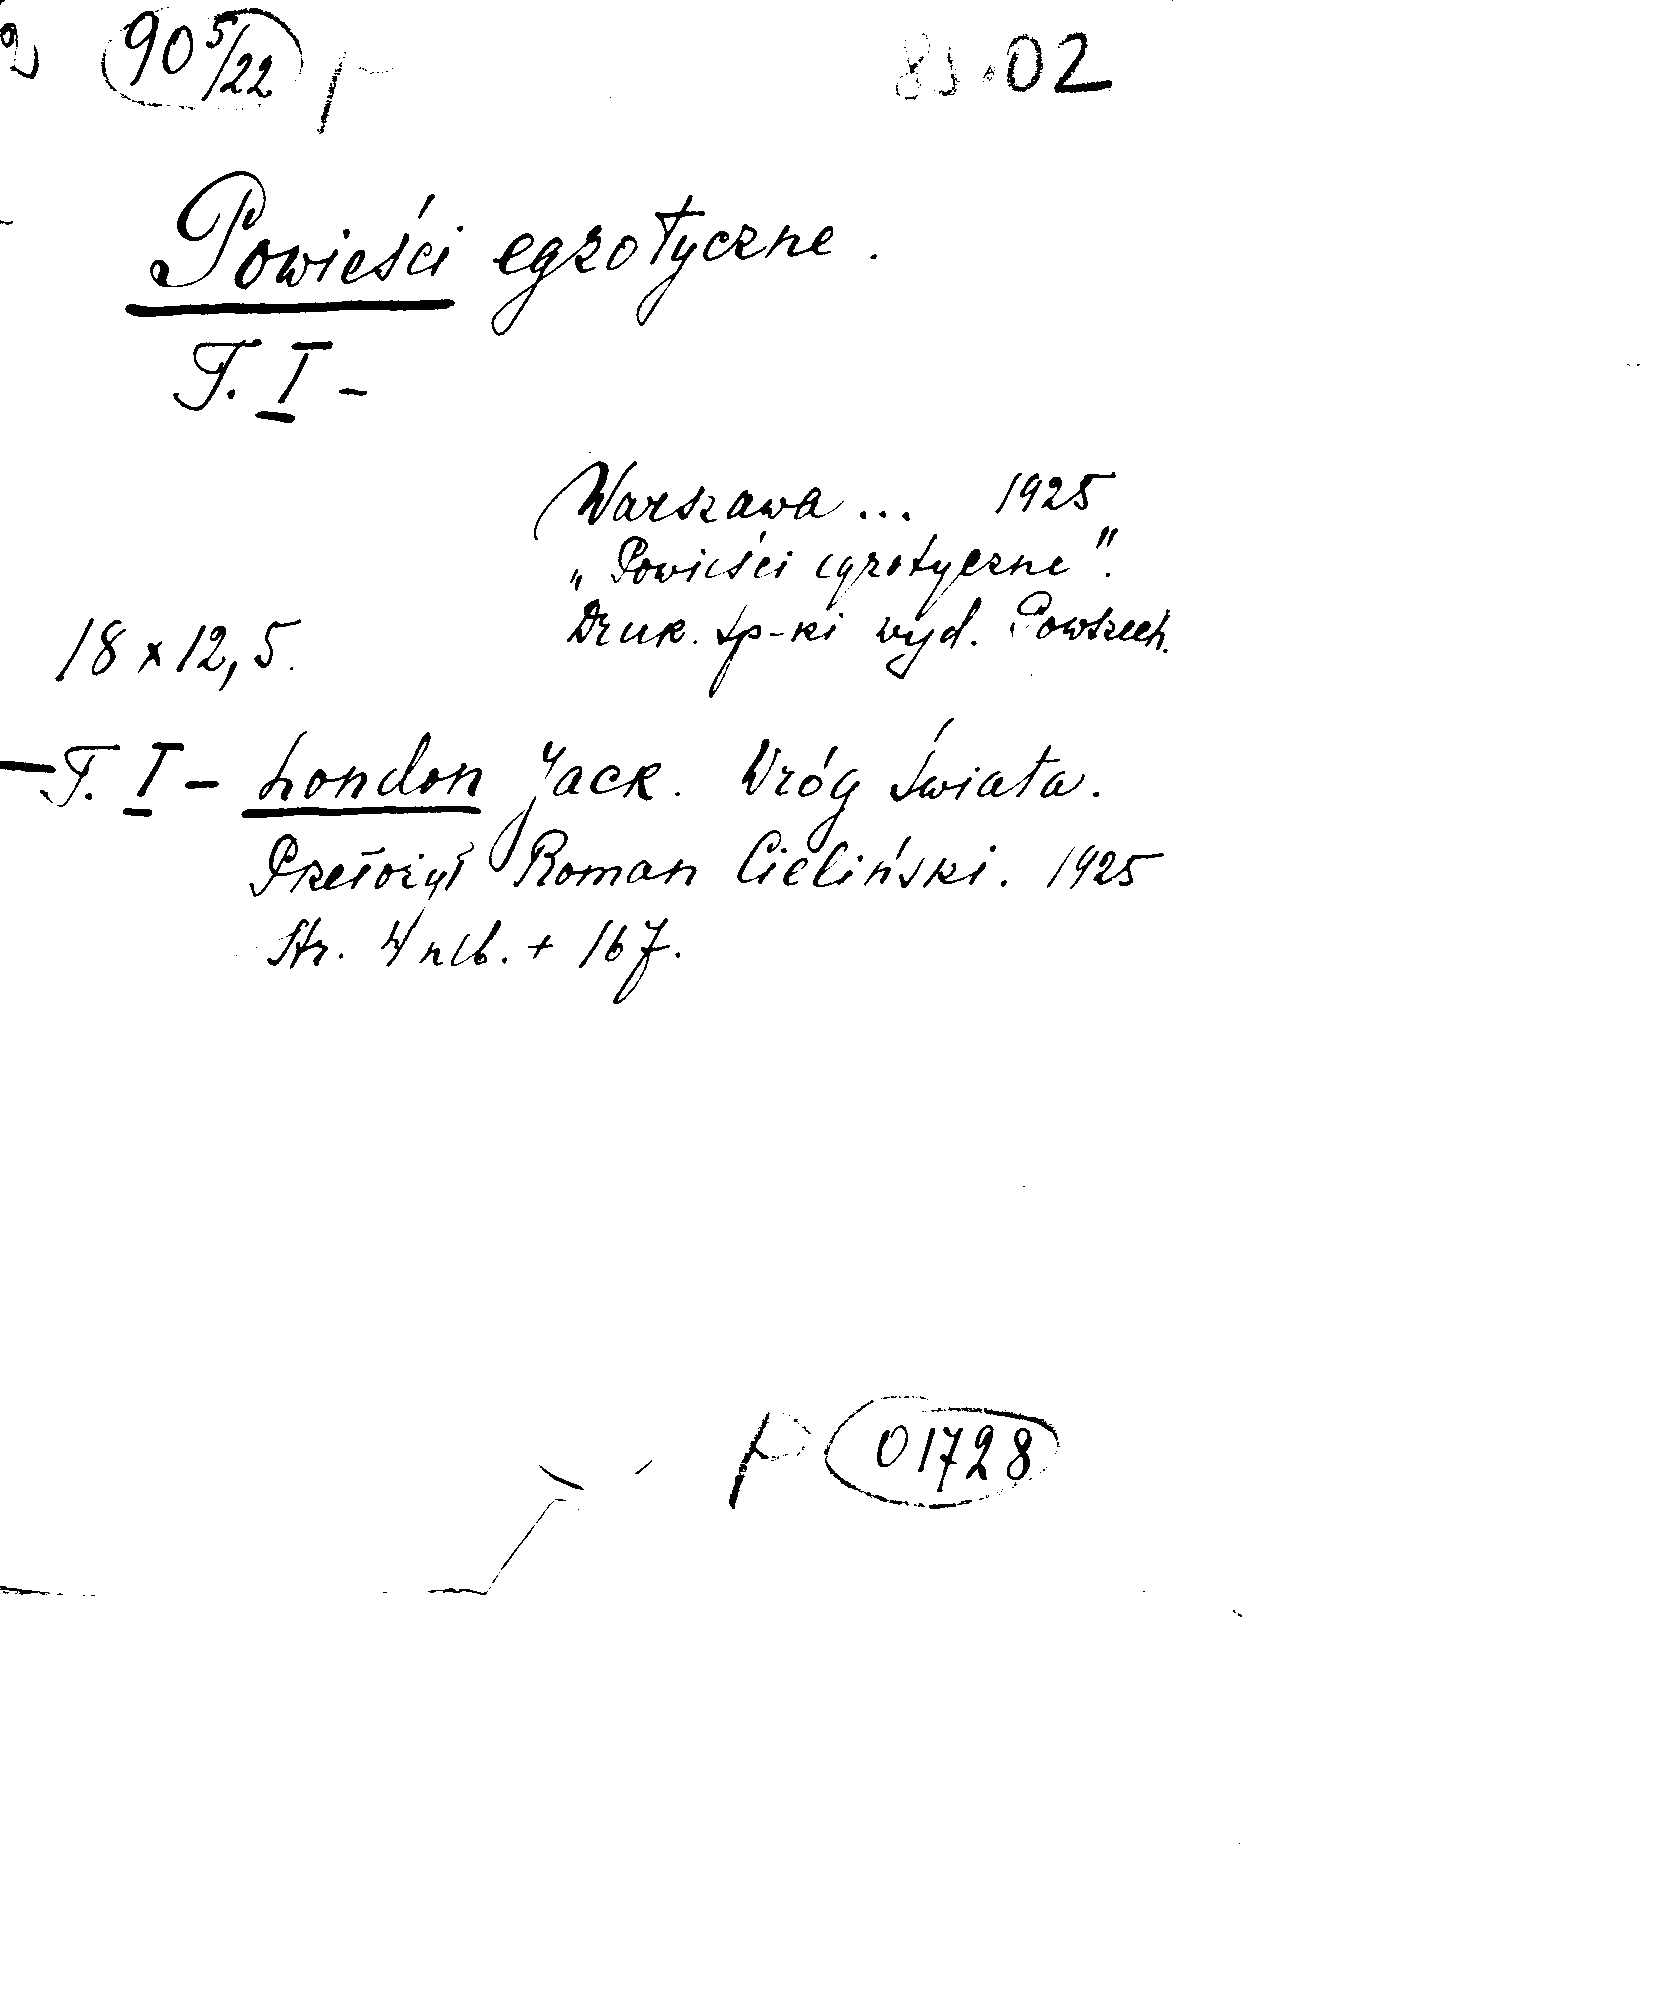 90 5/22
85.02
Powieści egzotyczne.
T. I -
Warszawa ... 1925
„Powieści egzotyczne".
Druk. Sp-ki wyd. Powszech.
18 x 12,5.
- T. I - London Jack. Wróg świata.
Przełożył Roman Cieliński. 1925
Str. 4 nlb. + 167.
P 01728